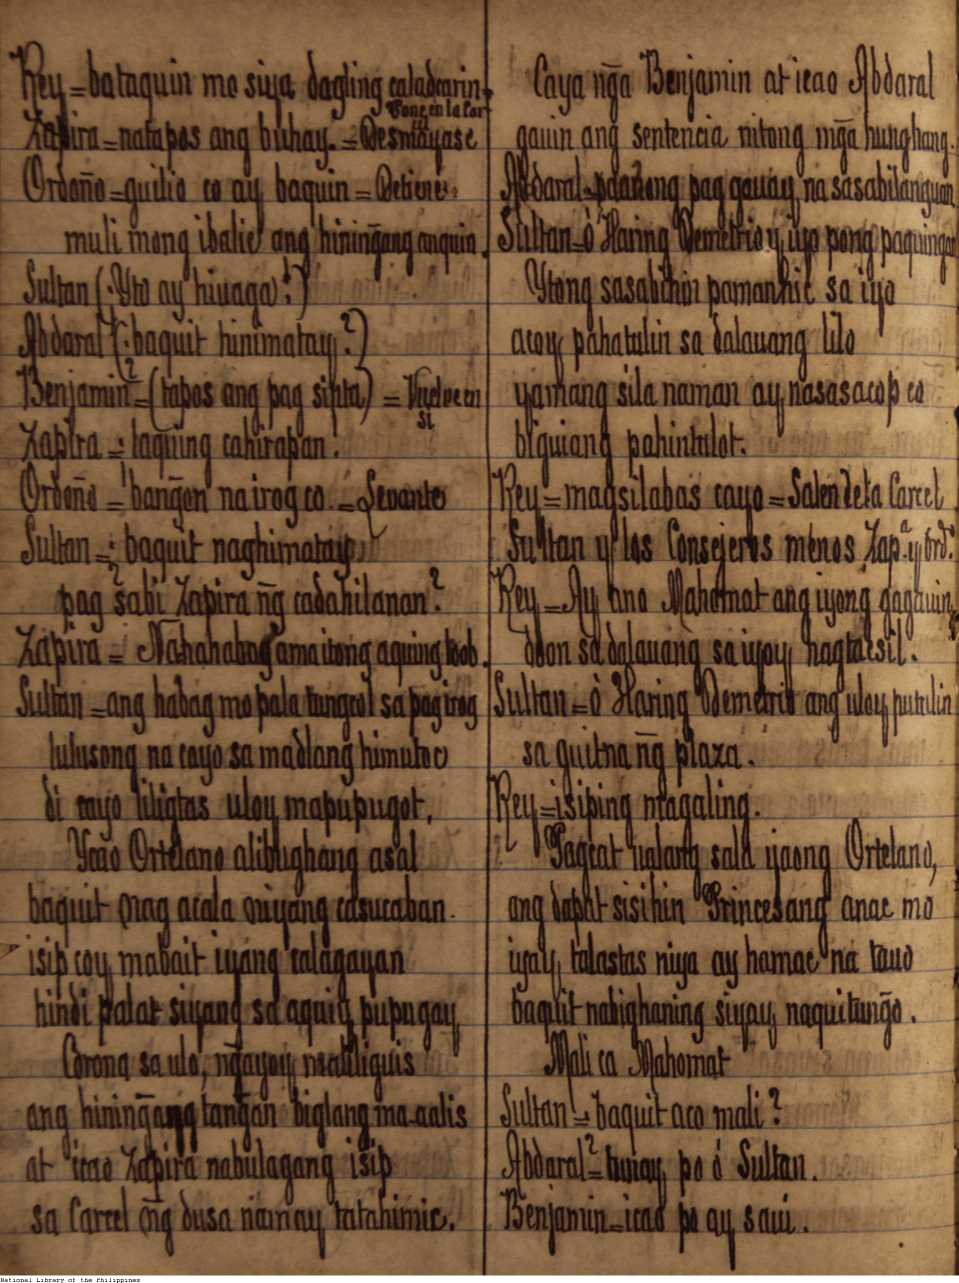 Rey = bataquin mo siya dagling caladcarin.
Pone en la Car
Zapira = natapos ang buhay. = Desmayase
Ordoño = guilio co ay baquin = Detiene:
muli mong ibalic ang hiningang
Sultan (Yto ay hiuaga!)
Abdaral (baquit hinimatay?)
Benjamin = (tapos ang pag sinta) = Vuelve en
si
Zapira = laquing cahirapan.
Ordoño = bangon na irog co. = Levante
Sultan = baquit naghimatay
pag sabi Zapira ng cadahilanan?
Zapira = Nahahabag ama itong aquing loob.
Sultan = ang habag mo pala tungcol sa pag irog
lulusong na cayo sa madlang himutoc
di cayo liligtas uloy mapupugot,
Ycao Ortelano alibughang asal
baquit nag acala niyang casucaban.
isip coy mabait iyang calagayan
hindi palat siyang sa aquiy pupugay
Corona sa ulo, ngayoy maliliguis
ang hiningang tangan biglang ma-aalis
at icao Zapira nabulagang isip
sa Carcel ng dusa namay tatahimic.
Caya nga Benjamin at icao Abdaral
gauin ang sentencia nitong mga hunghang.
Abdaral = pag gauay na sasabilangguan
Sultan = ò Haring Demetrioy iyo pong paquingan
Ytong sasabihin pamanhic sa iyo
acoy pahatulin sa dalauang lilo
yamang sila naman ay nasasacop co
biguiang pahintulot.
Rey = magsilabas cayo = Salen de la Carcel
Sultan y los Consejeros menos Zapª y Ordº
Rey = Ay ano Mahomat ang iyong gagauin
doon sa dalauang sa iyoy nagtacsil.
Sultan = ò Haring Demetrio ang uloy putulin
sa guitna ng plaza.
Rey = isiping magaling.
Pagcat ualang sala yaong Ortelano,
ang dapat sisihin Princesang anac mo
iyay talastas niya ay hamac na tauo
baquit nabighaning siyay naquitungo.
Mali ca Mahomat
Sultan = baquit aco mali?
Abdaral = tunay po ó Sultan.
Benjamin = icao po ay saui.
National Library of the Philippines